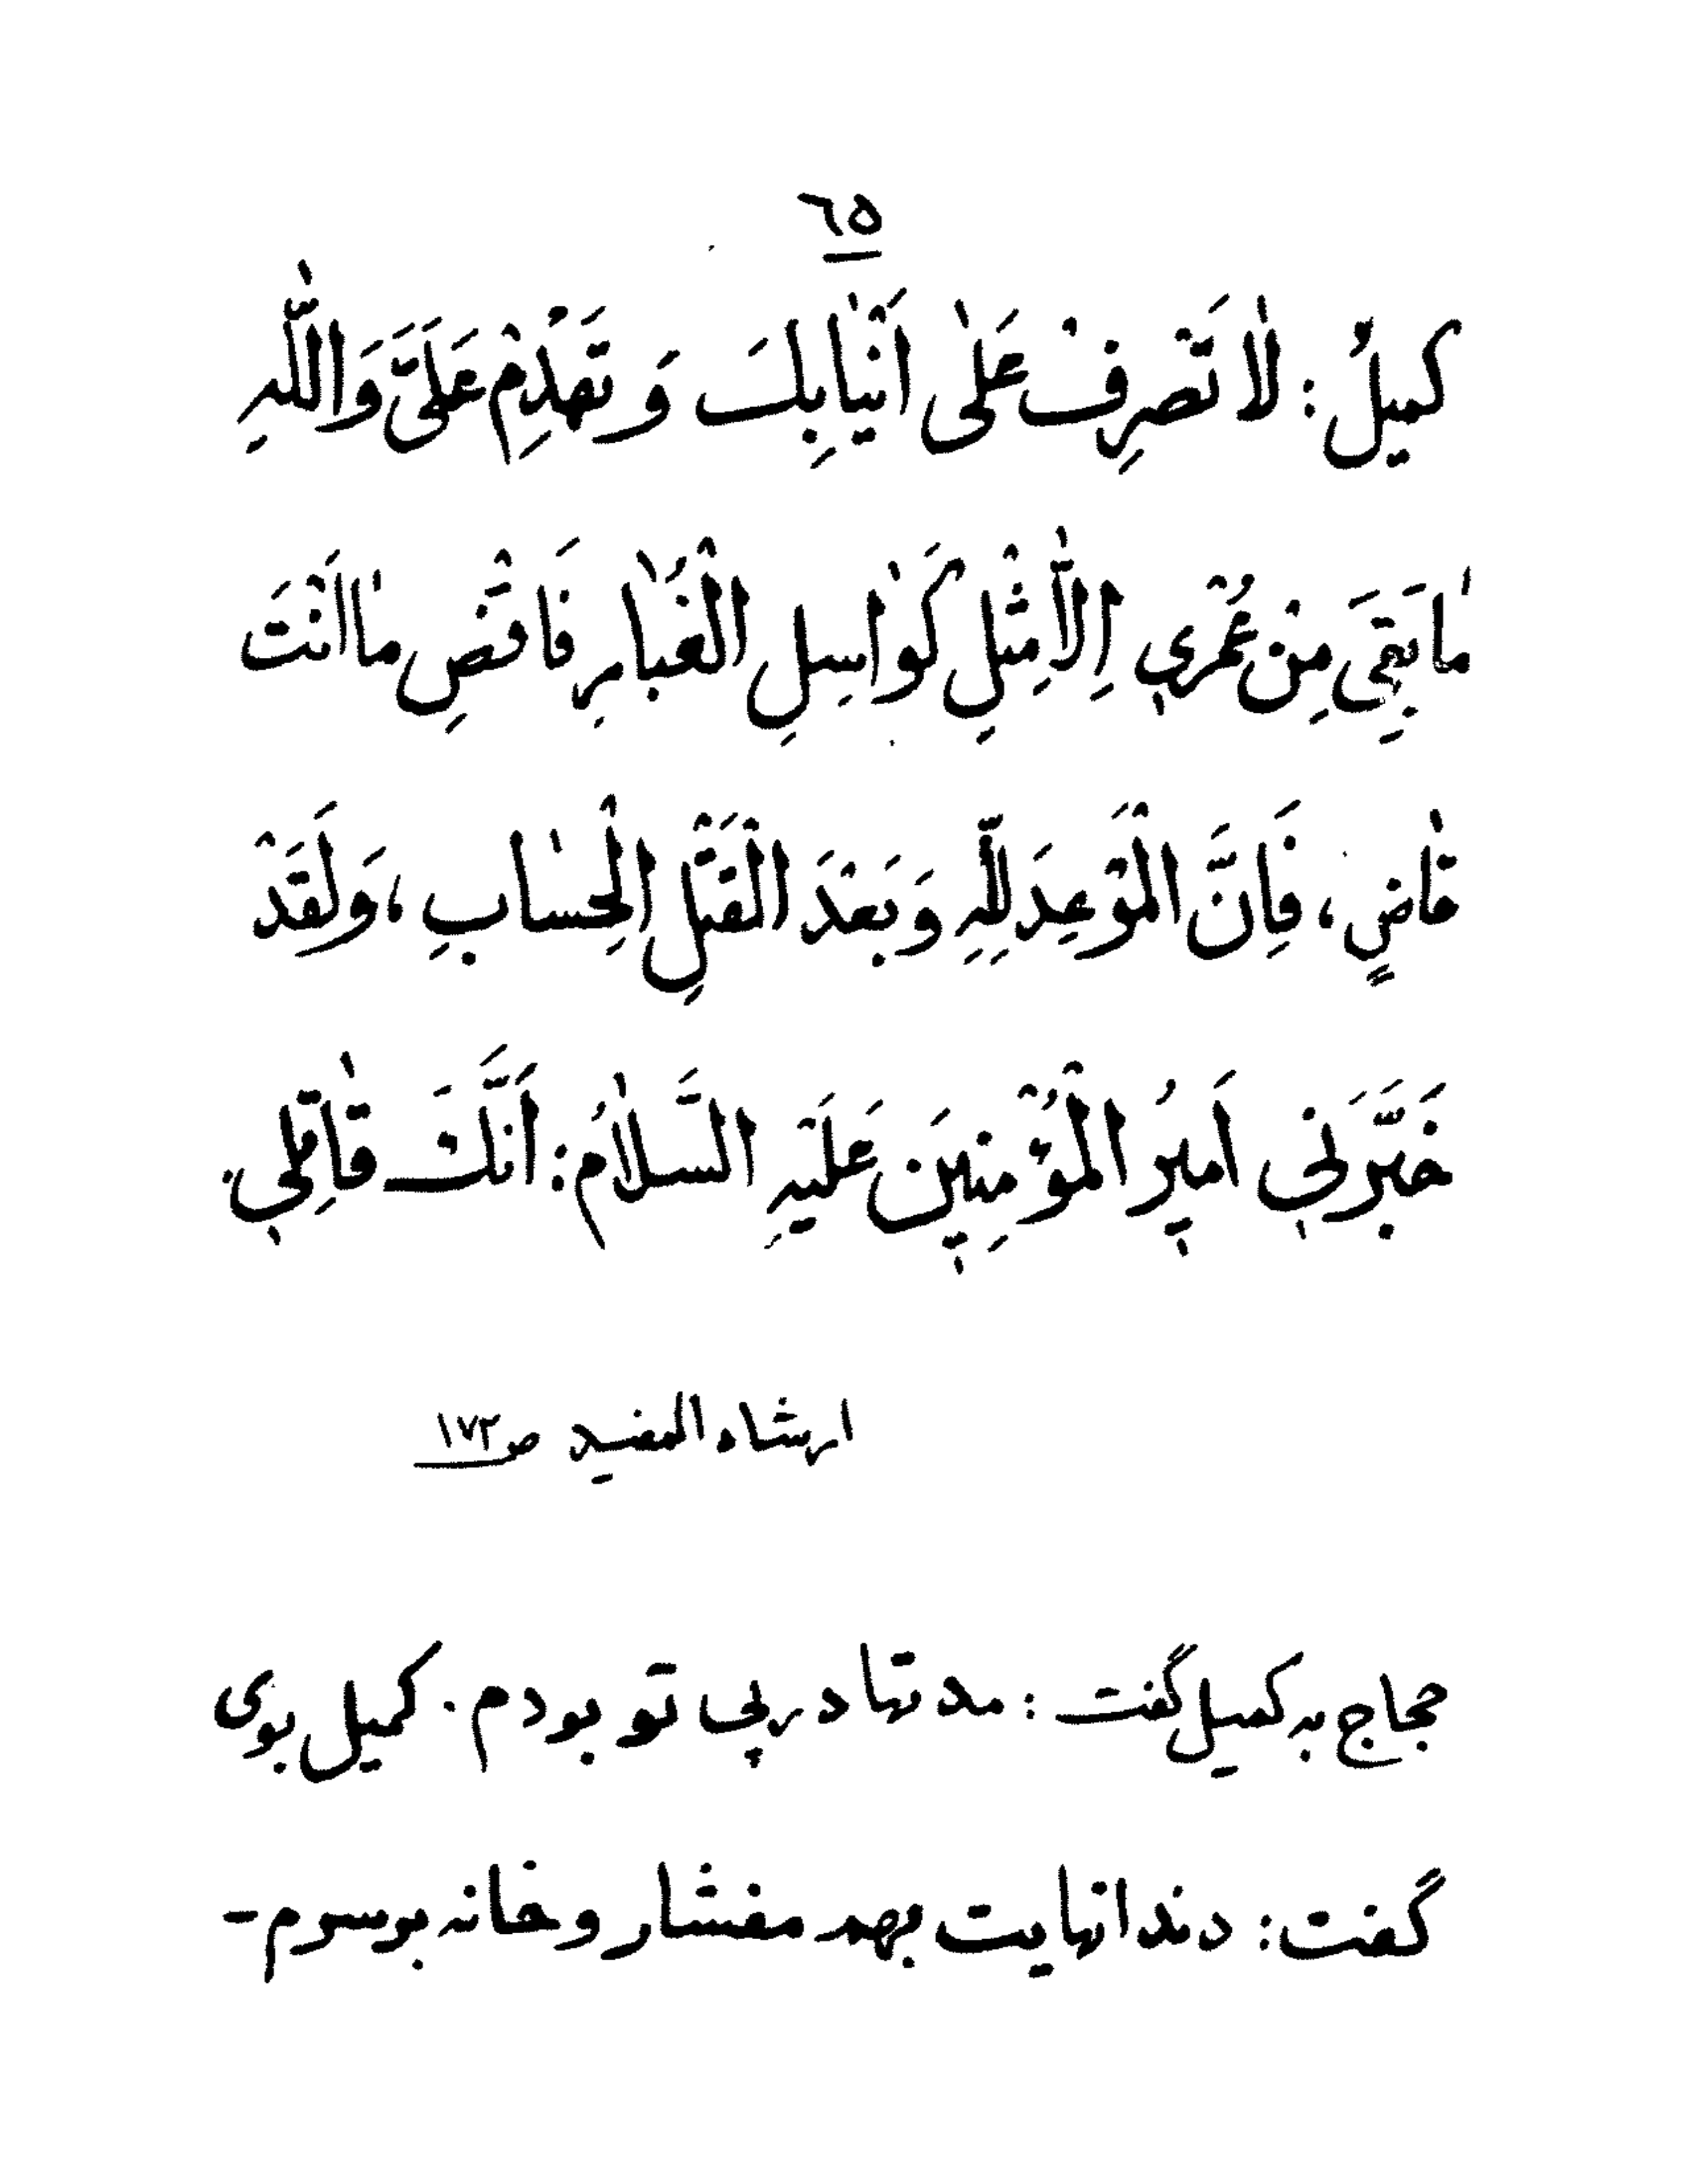 ٦٥
كميلُ : لٰا تَصْرِفْ عَلىٰ اَنْيٰابِكَ وَ تَهْذِمْ عَلَىَّ وَاللّٰهِ
مٰا بَقِىَ مِنْ عُمْرىٖ اِلاّٰ مِثْلِ كَوٰاسِلِ الْغُبٰارِ فَاقْضِ مٰا اَنْتَ
قٰاضٍ ، فَاِنَّ الْمَوْعِدَ لِلّهِ وَ بَعْدَ الْقَتْلِ الْحِسٰابِ ، وَ لَقَدْ
خَبَّرَنىٖ اَمٖيرُ الْمُؤْمِنٖينَ عَلَيْهِ السَّلٰامُ : اَنَّكَ قٰاتِلىٖ .
ارشاد المفيد ص ١٧٢
حجاج به كميل گفت : مدتها در پى تو بودم . كميل بوى
گفت : دندانهايت بهم مفشار و خانه بر سرم -